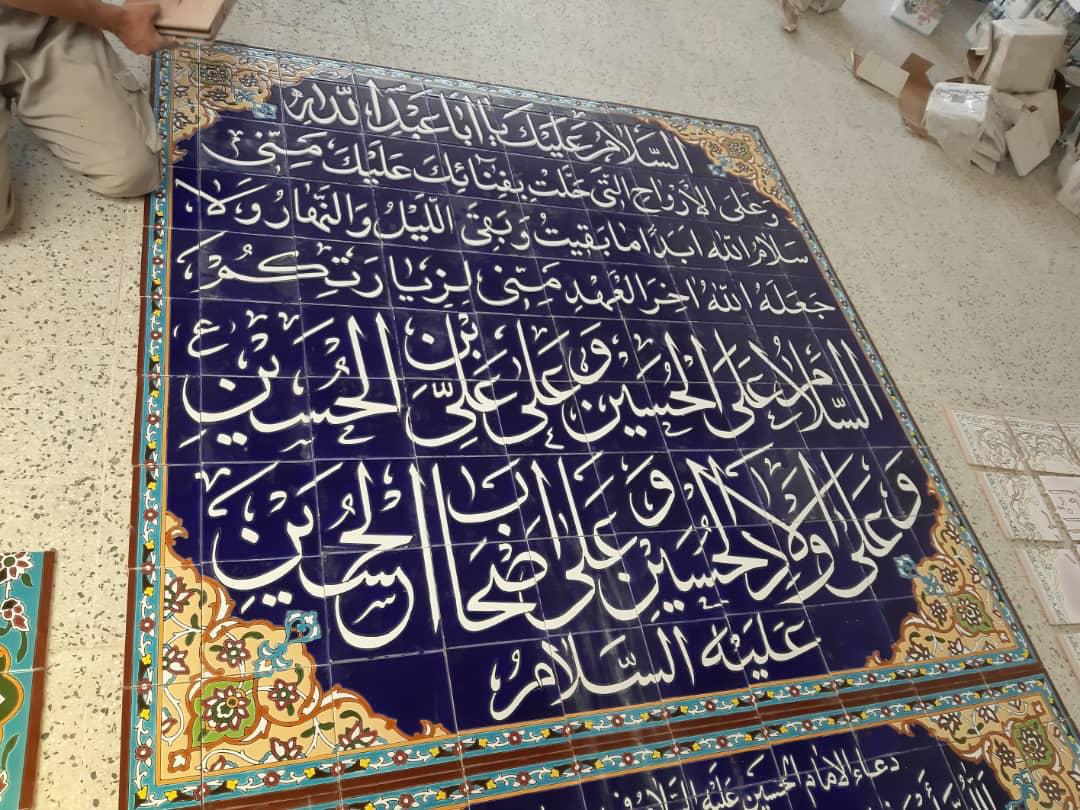 السَّلامُ عَلَيْكَ يا اَبا عَبْدِ اللَّهِ
وَ عَلى الاَرْواحِ الَّتى حَلَّتْ بِفِنآئِكَ عَلَيْكَ مِنّى
سَلامُ اللهِ اَبَداً ما بَقيتُ وَ بَقِىَ اللَّيْلُ وَ النَّهارُ وَ لا
جَعَلَهُ اللهُ اخِرَ العَهْدِ مِنّى لِزِيارَتِكُمْ
السَّلامُ عَلَى الْحُسَيْنِ وَ عَلى عَلِىِّ بْنِ الْحُسَيْنِ ع
وَ عَلى اَوْلادِ الْحُسَيْنِ وَ عَلى اَصْحابِ الْحُسَيْنِ
عَلَيْهِ السَّلامُ
دعاء الامام الحسين عليه السلام